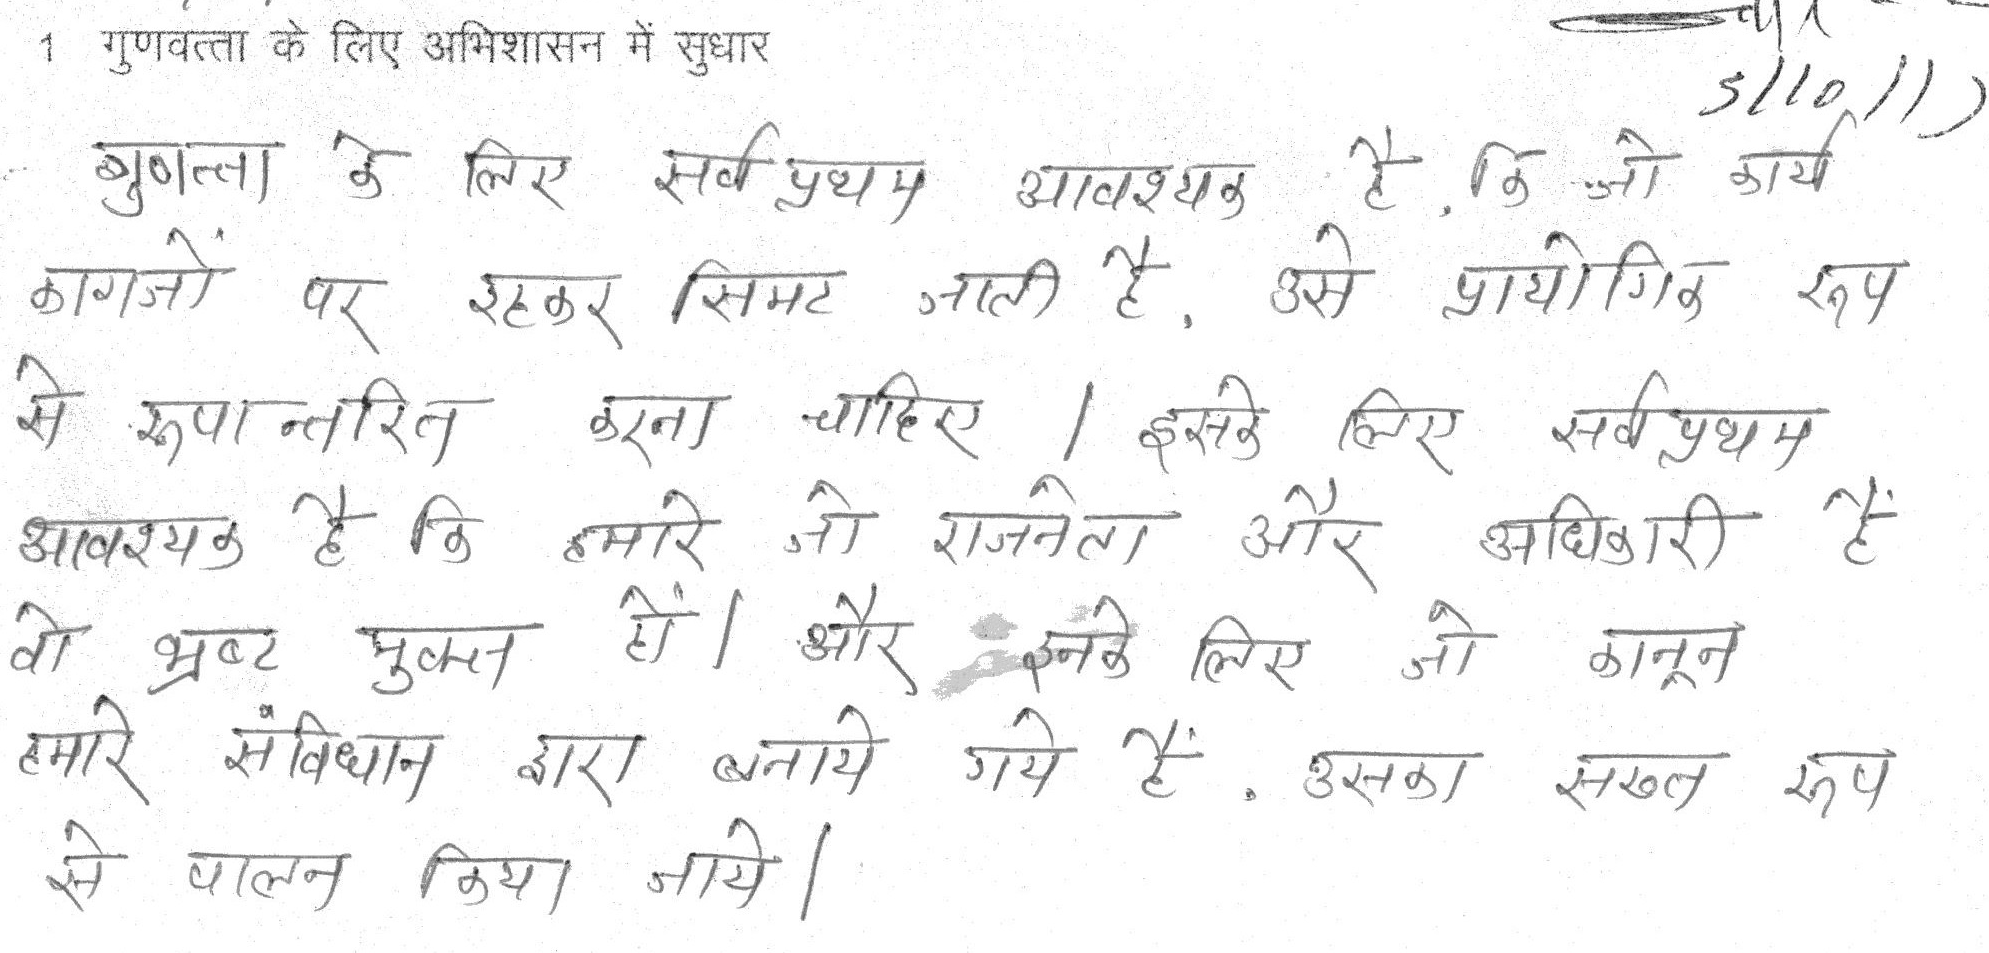 1 गुणवत्ता के लिए अभिशासन में सुधार
5/10/15
गुणत्ता के लिए सर्वप्रथम आवश्यक है, कि जो कार्य
कागजों पर रहकर सिमट जाती है, उसे प्रायोगिक रूप
से रूपान्तरित करना चाहिए । इसके लिए सर्वप्रथम
आवश्यक है कि हमारे जो राजनेता और अधिकारी हैं
वो भ्रष्ट मुक्त हों। और इनके लिए जो कानून
हमारे संविधान द्वारा बनाये गये हैं, उसका सख्त रूप
से पालन किया जाये।